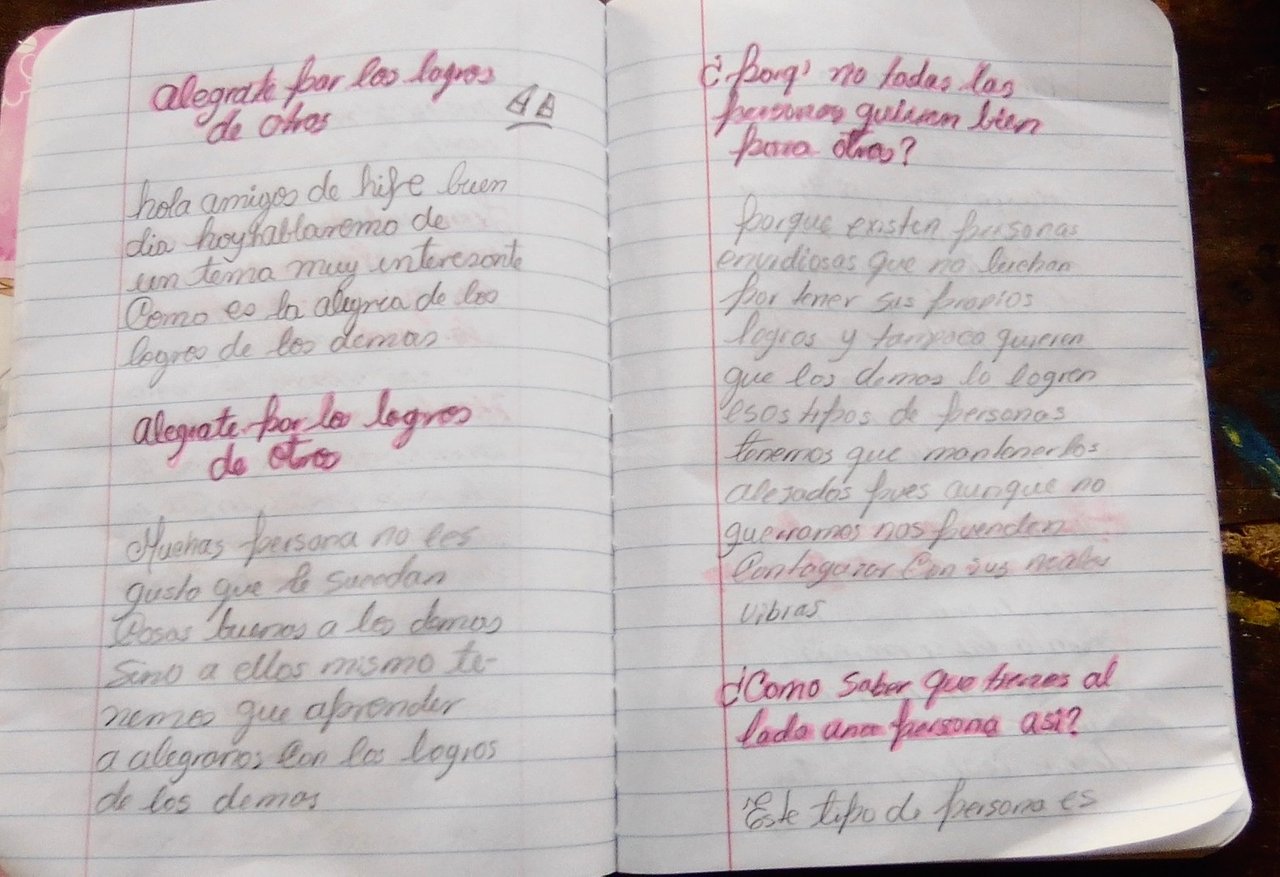 alegrate por los logros
de otros
hola amigos de hife buen
dia hoy hablaremo de
un tema muy interesante
Como es la alegria de los
logros de los demas
alegrate por lo logros
de otros
Muchas persona no les
gusto que le sucedan
Cosas buenas a los demas
Sino a ellos mismo te-
nemos que aprender
a alegrarnos con los logros
de los demas
¿Porq' no todas las
personas quieren bien
para otros?
Porque existen personas
envidiosas que no luchan
por tener sus propios
logros y tampoco quieren
que los demas lo logren
esos tipos de personas
tenemos que mantenerlos
alejados pues aunque no
querramos nos puenden
Contagazar Con sus malas
vibras
¿Como saber que tienes al
lado una persona asi?
Este tipo de persona es